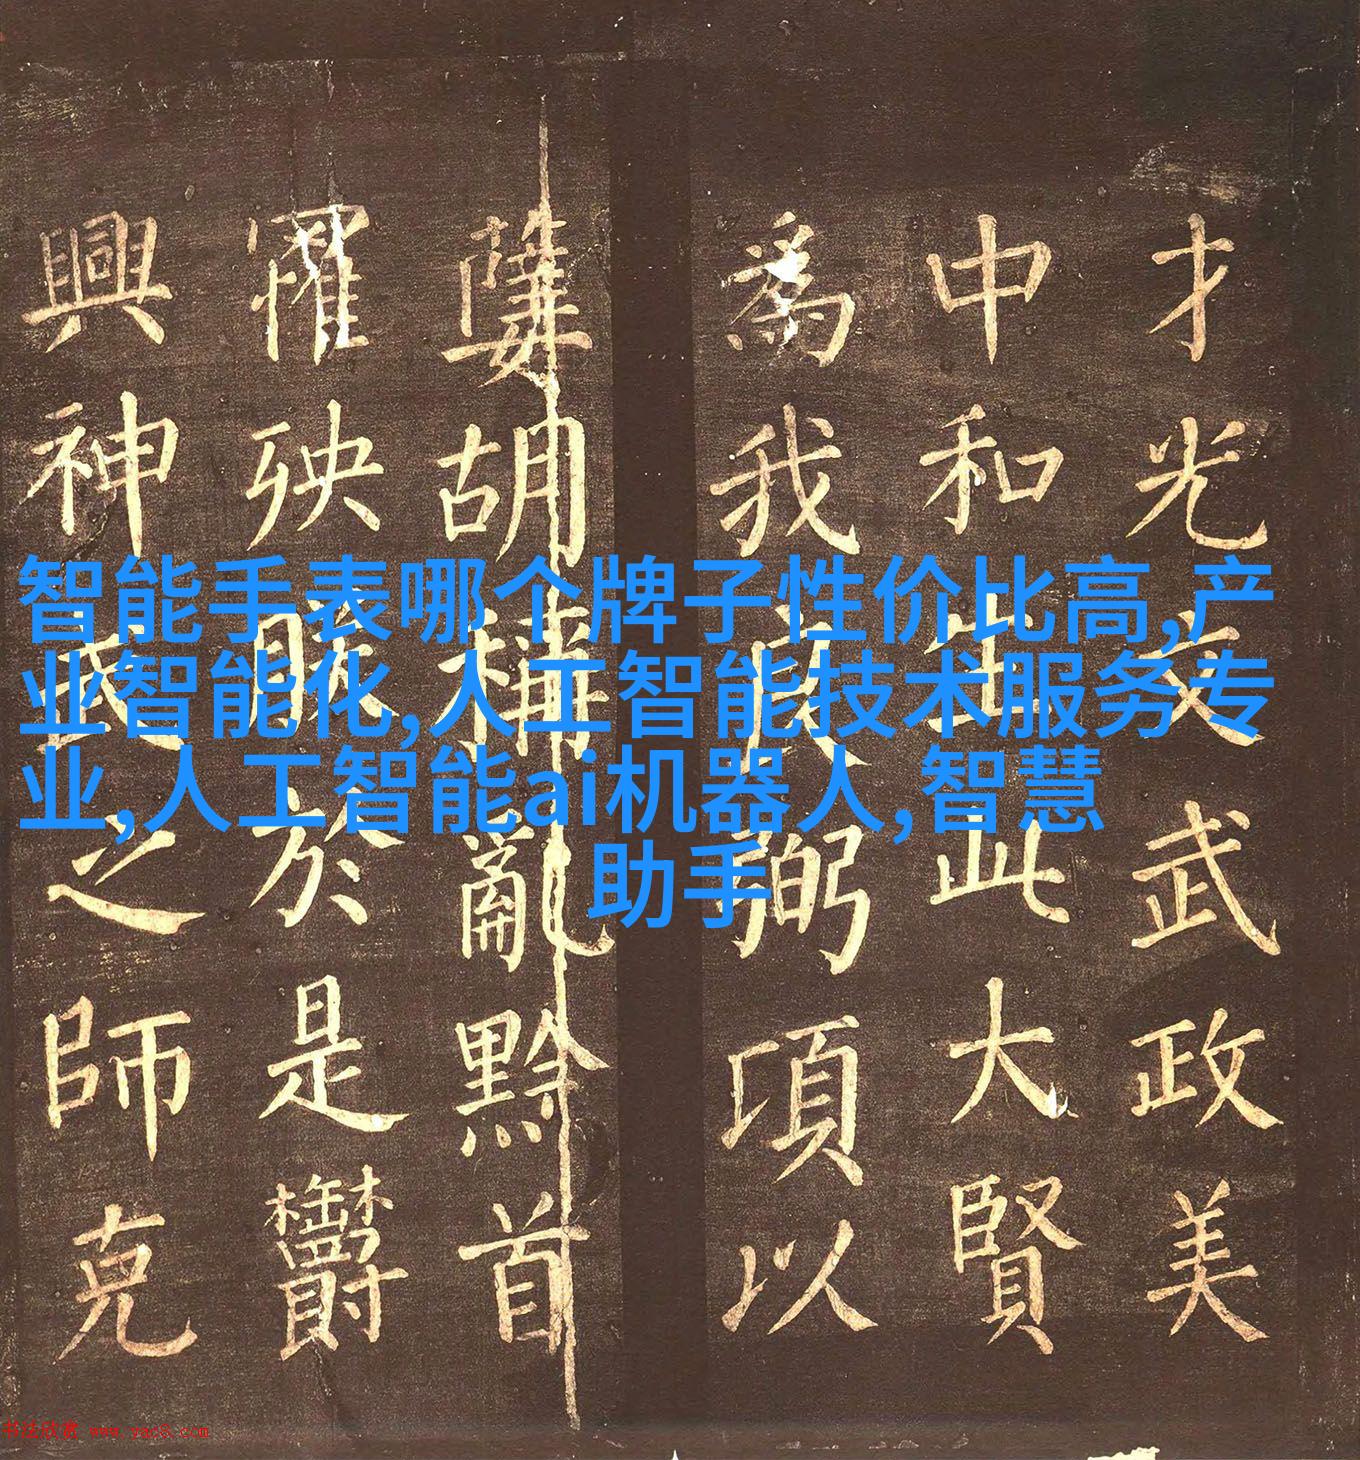 智能手表哪个牌子性价比高,产
业智能化,人工智能技术服务专
业,人工智能ai机器人,智慧
助手
才光文武政美
中和此大賢
為我弼項以
胡稱亂黔首
罹殃於是欝
興神武之師克
书法欣赏 www.yac8.com